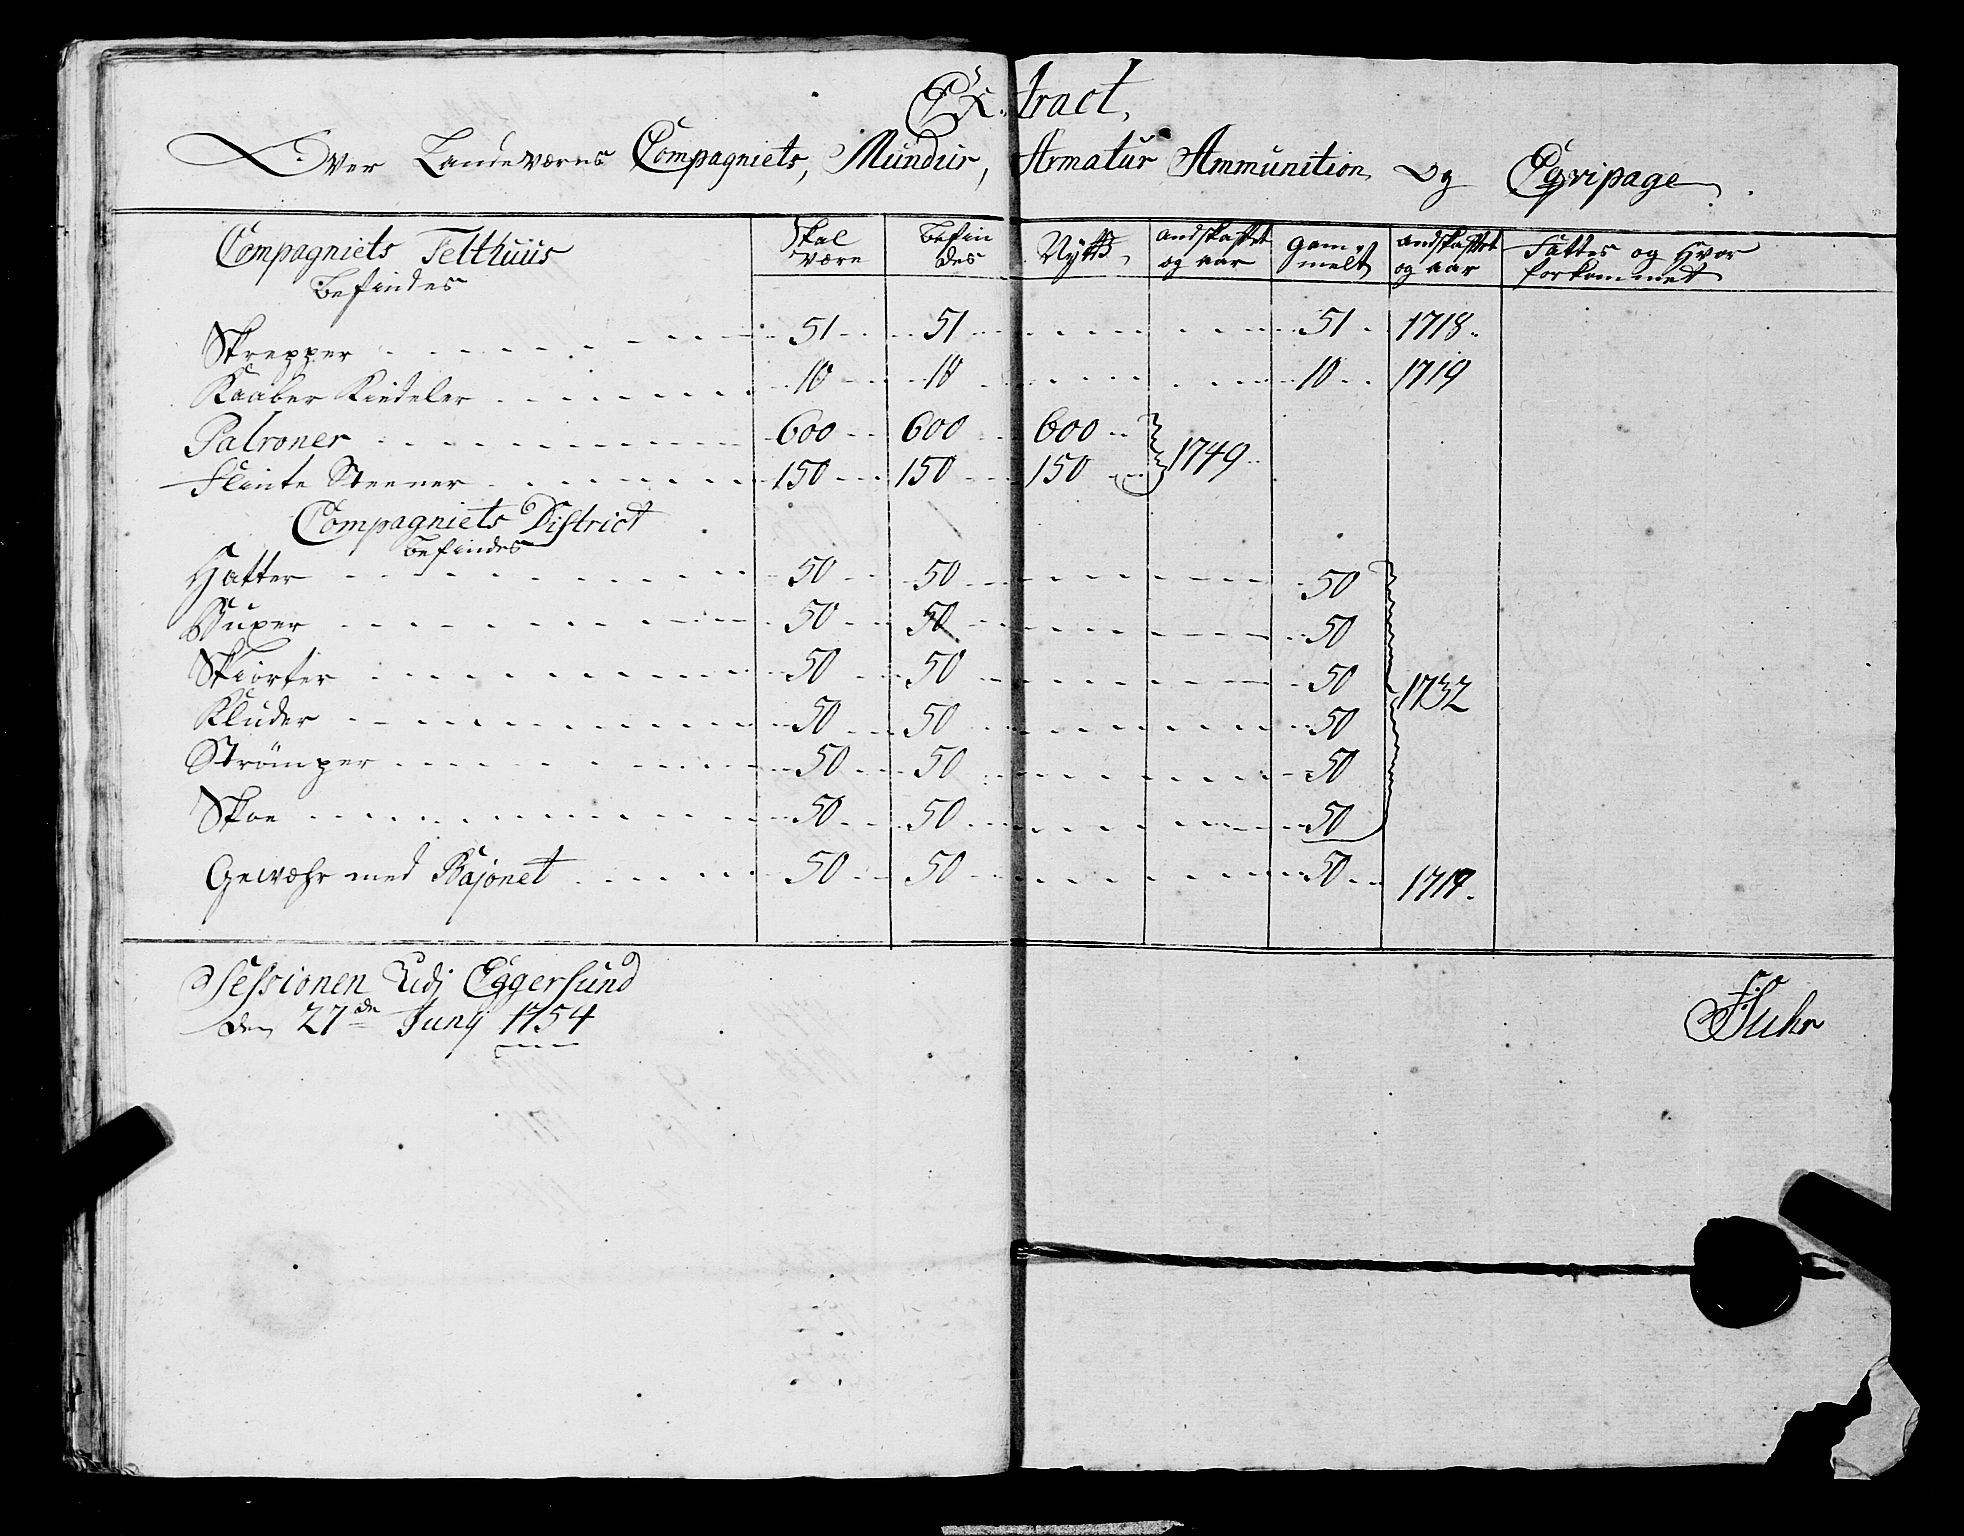 Extract,
Over Landeværns Compagniets, Mundur, Armatur Ammunition og Eqvipage
Compagniets Telthuus Skal være Befindes Nytt andskaffet og aar gammelt andskaffet og aar Fattes og Hvor forkommet
Befindes
Skrepper 51 51 51 1718
Kaaber Kiedeler 10 10 10 1719
Patroner 600 600 600 1749
Flinte Steener 150 150 150
Compagniets District
Befindes
Hatter 50 50 50
Buxer 50 50 50
Skiorter 50 50 50 1732
Kluder 50 50 50
Strömper 50 50 50
Skoe 50 50 50
Gewæhr med Bajonet 50 50 50 1719
Sessionen Udj Eggersund
den 27de Junij 1754
Fuhr